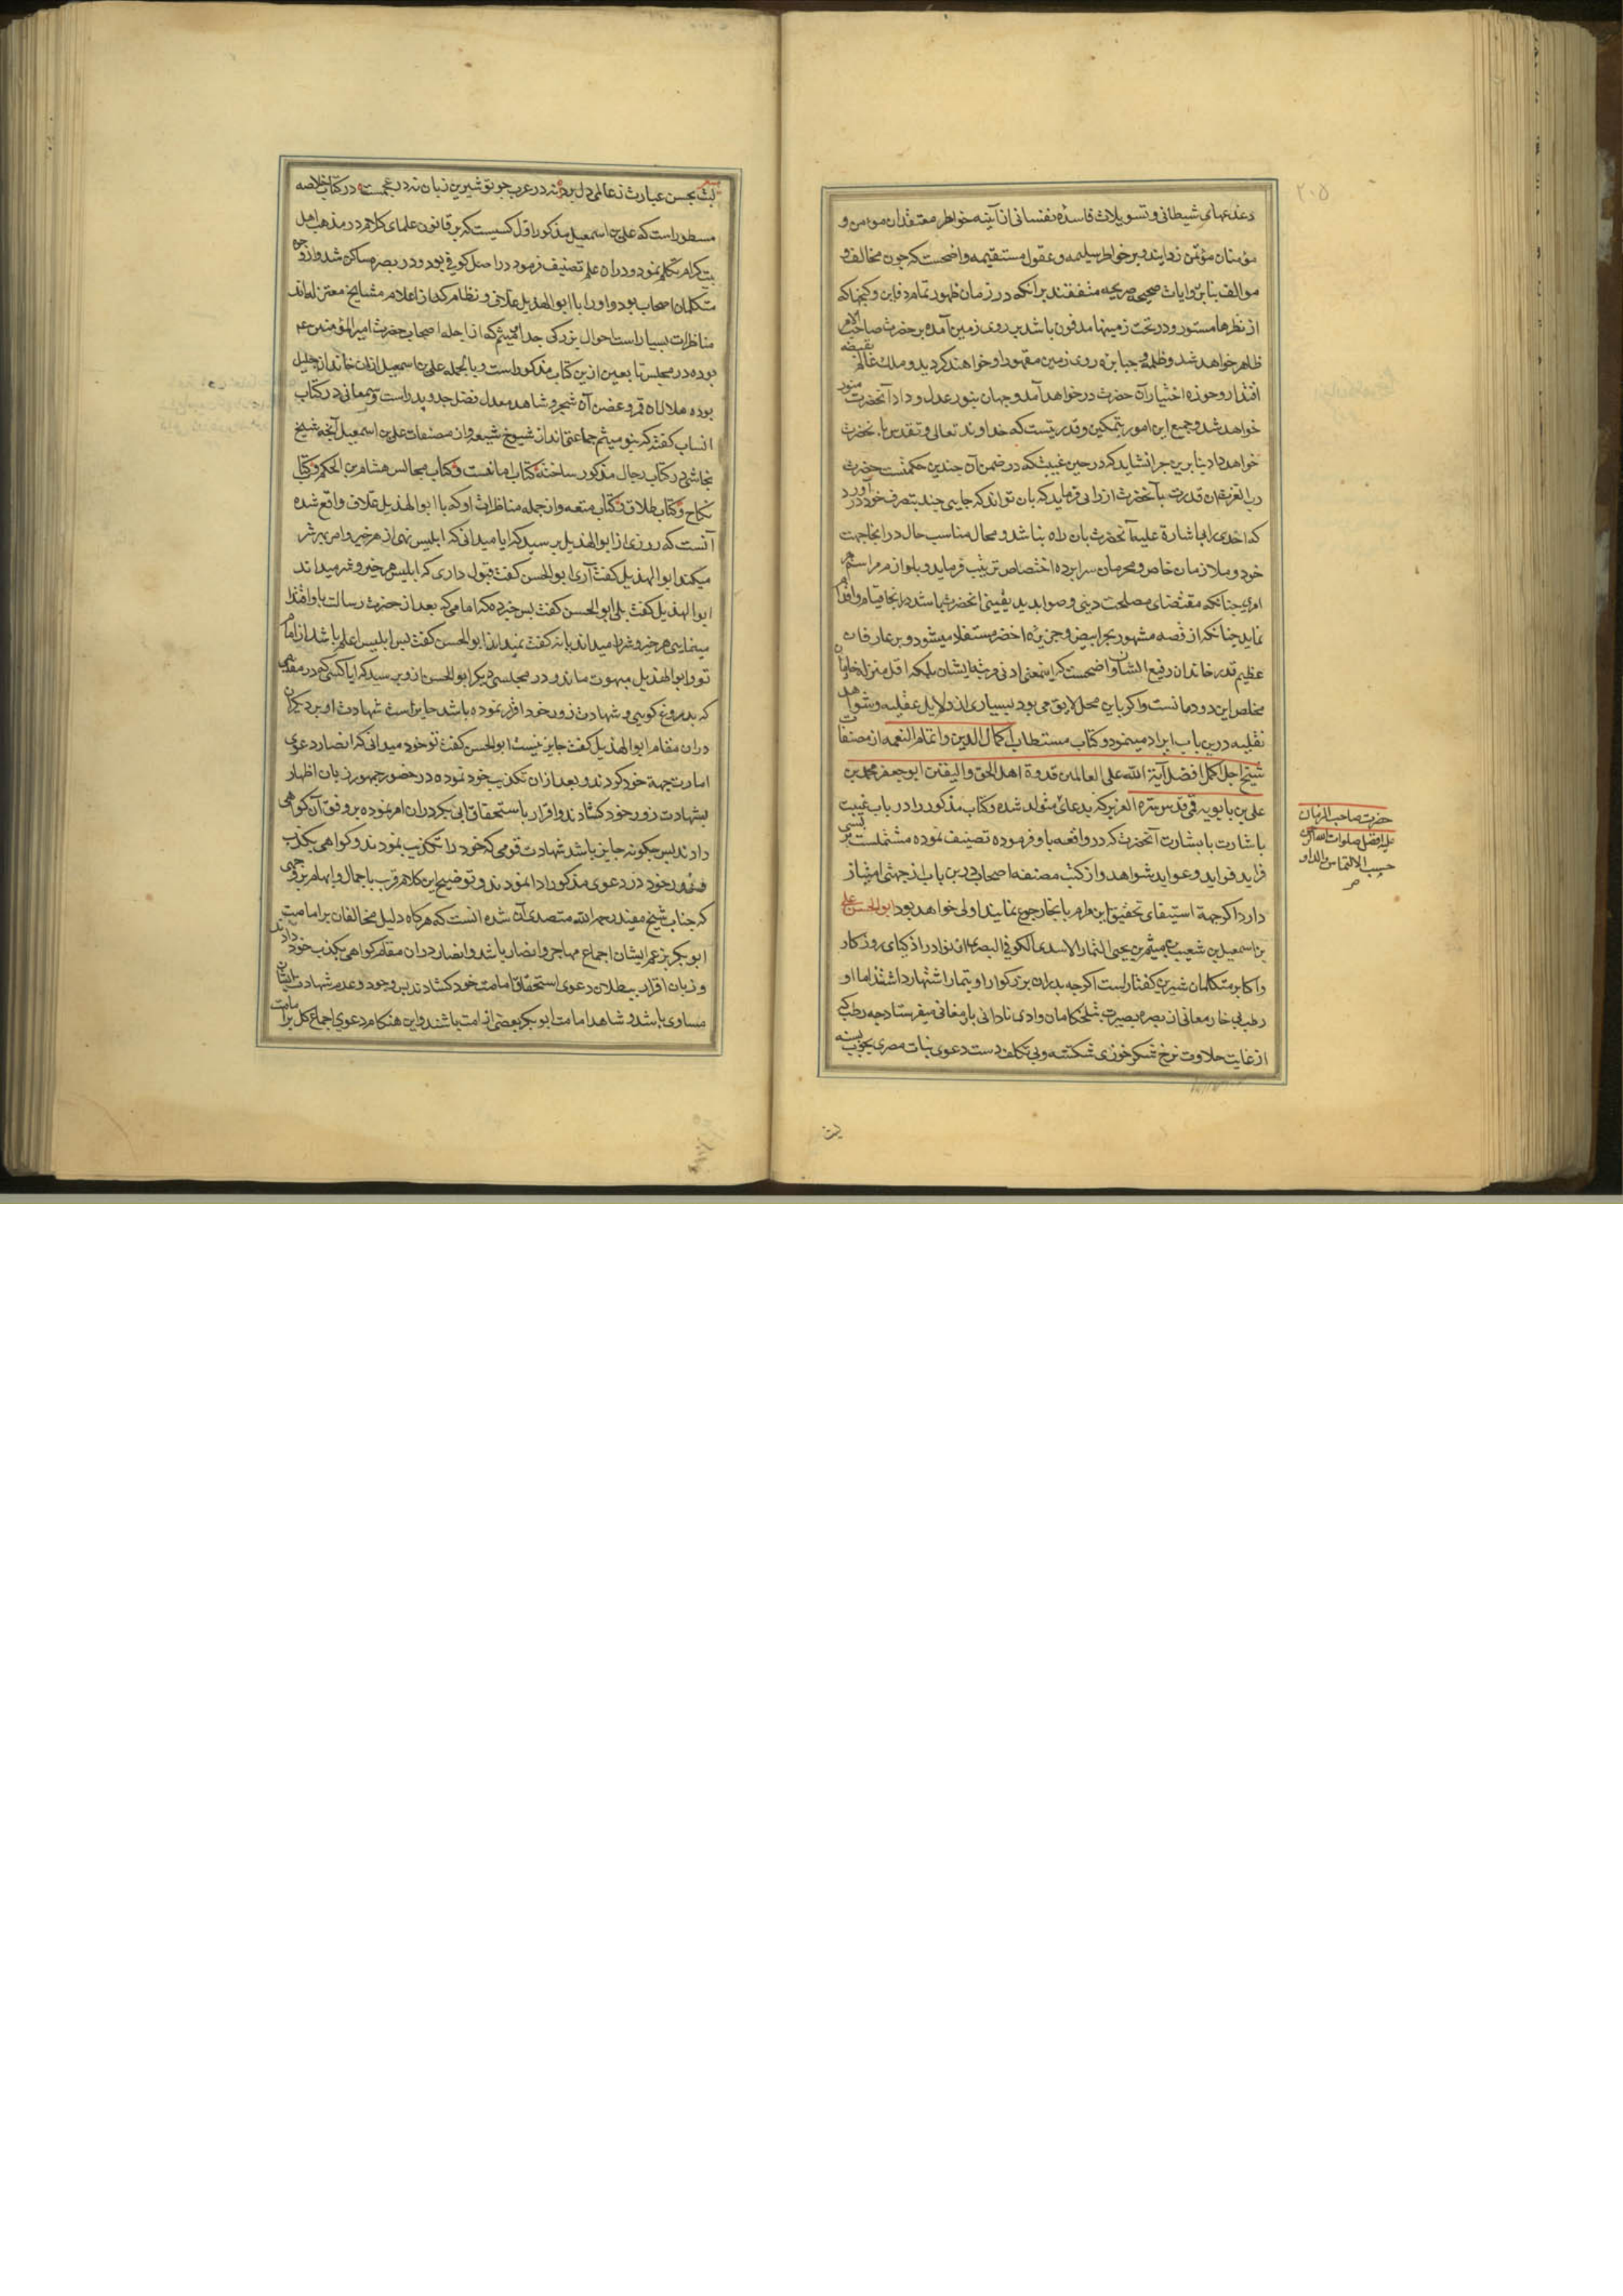 ۲۰۵
دغدغهای شیطانی و تسویلات فاسده نفسانی از آینه خواطر معتقدان مومن و
مؤمنان مؤتمن زدایند و بر خواطر سلیمه و عقول مستقیمه واضحست که چون مخالف و
موالف بنا بر روایات صحیحه صریحه متفقند بر آنکه در زمان ظهور تمام دفاین و کنجها که
از نظرها مستور و در تحت زمینها مدفون باشد بر روی زمین آمده بر حضرت صاحب الامر
ظاهر خواهد شد و ظلمه و جبابره روی زمین مقهور او خواهند کردید و ملک عالم بقبضه
اقتدار و حوزه اختیار آن حضرت در خواهد آمد و جهان بنور عدل و داد آنحضرت منور
خواهد شد و جمیع این امور بتمکین و قدرتیست که خداوند تعالی و تقدس بآنحضرت
خواهد داد بنابرین چرا نشاید که در حین غیبت که در ضمن آن چندین حکمتست حضرت
رب العزت آن قدرت بآنحضرت ارزانی فرماید که بان تواند که جایی چند بتصرف خود در آورد
که احدی را بی اشارة علیه آنحضرت بان راه نباشد و محال مناسب حال در آنجا جهت
خود و ملازمان خاص و محرمان سرابرده اختصاص ترتیب فرماید و بلوازم مراسم هر
امری جنانکه مقتضای مصلحت دینی و صوابدید یقینی آنحضرت باشد در آنجا قیام و اقدام
نماید جنانکه از قصه مشهور بحر ابیض و جزیره اخضر مستفاد میشود و بر عارفان
عظیم قدر خاندان رفیع الشان واضحست که اینمعنی ادنی مرتبه ایشان بلکه اقل منزله خادمان
مخلص این دودمانست و اکر باین محل لایق می بود بسیاری از دلایل عقلیه و شواهد
نقلیه درین باب ایراد مینمود و کتاب مستطاب اکمال الدین و اتمام النعمه از مصنفات
شیخ اجل اکمل افضل آیة الله علی العالمین قدوة اهل الحق و الیقین ابو جعفر محمد بن
علی بن بابویه قمی قدس سره العزیز که بدعای متولد شده و کتاب مذکور را در باب غیبت
باشارت با بشارت آنحضرت که در واقعه باو فرموده تصنیف نموده مشتملست بر بسی
فراید فواید و عواید شواهد و از کتب مصنفه اصحاب درین باب از جهتی امتیاز
دارد اکر جهة استیفای تحقیق این مرام بانجا رجوع نمایند اولی خواهد بود ابو الحسن علی
بن اسمعیل بن شعیب بن میثم بن یحیی التمار الاسدی الکوفی البصری از نوادر اذکیای روزکار
و اکابر متکلمان شیرین کفتار است اکر چه پدران بزرکوار او بتمار اشتهار داشتند اما او
رطب بی خار معانی از بصره بصیرت بتلخکامان وادی نادانی بارمغانی میفرستاد چه رطبی که
از غایت حلاوت نرخ شکر خوزی شکسته و بی تکلف دست دعوی نبات مصری بچوب بسته
حضرت صاحب الزمان
علیه افضل صلوات
حسب الالتماس والد او
بیت
بیت بحسن عبارت ز عالمی دل برد نه در عرب چو تو شیرین زبان نه در عجمست در کتاب خلاصه
مسطور است که علی بن اسمعیل مذکور اول کسیست که بر قانون علمای کلام در مذهب اهل
بیت کرام تکلم نمود و در آن علم تصنیف فرمود در اصل کوفی بود و در بصره ساکن شد و از وجوه
متکلمان اصحاب بود و او را با ابو الهذیل علاف و نظام که از اعلام مشایخ معتزله اند
مناظرات بسیار است احوال بزرکی جد او میثم که از اجله اصحاب حضرت امیر المؤمنین ع
بوده در مجلس تابعین ازین کتاب مذکور است و بالجمله علی بن اسمعیل از ان خاندان جلیل
بوده هلال آن قمر و غصن آن شجر و شاهد معدل فضل جد و پدر است و سمعانی در کتاب
انساب کفته که بنو میثم جماعتی اند از شیوخ شیعه و از مصنفات علی بن اسمعیل آنچه شیخ
نجاشی در کتاب رجال مذکور ساخته کتاب امامت و کتاب مجالس هشام بن الحکم و کتاب
نکاح و کتاب طلاق و کتاب متعه و از جمله مناظرات او که با ابو الهذیل علاف واقع شده
آنست که روزی از ابو الهذیل پرسید که ایا میدانی که ابلیس نهی از هر خیر و امر بهر شر
میکند ابو الهذیل کفت آری ابو الحسن کفت قبول داری که ابلیس هر خیر و شر میداند
ابو الهذیل کفت بلی ابو الحسن کفت پس خبر ده که امامی که بعد از حضرت رسالت باو اقتدا
مینمایی هر خیر و شر را میداند یا نه کفت نمیداند ابو الحسن کفت پس ابلیس اعلم باشد از امام
تو و ابو الهذیل مبهوت ماند و در مجلسی دیکر ابو الحسن از و پرسید که ایا کسی که در مقامی
که بدروغ کویی و شهادت زور خود اقرار نموده باشد جایز است شهادت او بر دیکران
در ان مقام ابو الهذیل کفت جایز نیست ابو الحسن کفت تو خود میدانی که انصار دعوی
امارت جهة خود کردند و بعد از ان تکذیب خود نموده در حضور جمهور زبان اظهار
بشهادت زور خود کشادند و اقرار باستحقاق ابی بکر در ان امر نموده بر وفق آن کواهی
دادند پس چکونه جایز باشد شهادت قومی که خود را تکذیب نمودند و کواهی بکذب
و زور خود در دعوی مذکور ادا نمودند و توضیح این کلام قرب باجمال و ابهام بر وجهی
که جناب شیخ مفید رحمه الله متصدی آن شده آنست که هر کاه دلیل مخالفان بر امامت
ابو بکر بزعم ایشان اجماع مهاجر و انصار باشد و انصار در ان مقام کواهی بکذب خود دادند
و زبان اقرار ببطلان دعوی استحقاق امامت خود کشادند پس وجود و عدم شهادت ایشان
مساوی باشد و شاهد امامت ابو بکر بعضی از امت باشند و این هنکام دعوی اجماع کل بر امامت